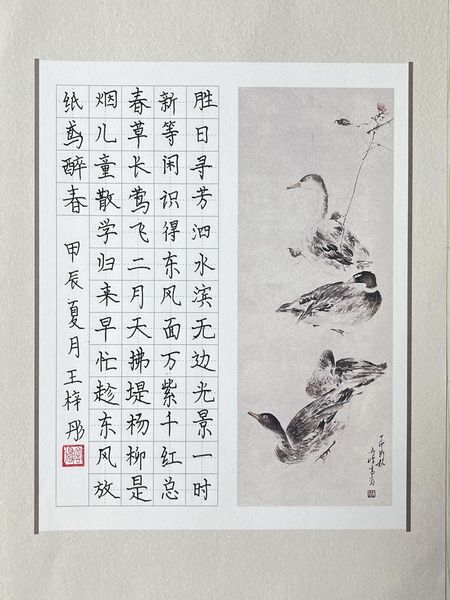 胜日寻芳泗水滨无边光景一时
新等闲识得东风面万紫千红总
春草长莺飞二月天拂堤杨柳是
烟儿童散学归来早忙趁东风放
纸鸢醉春
甲辰夏月王梓彤